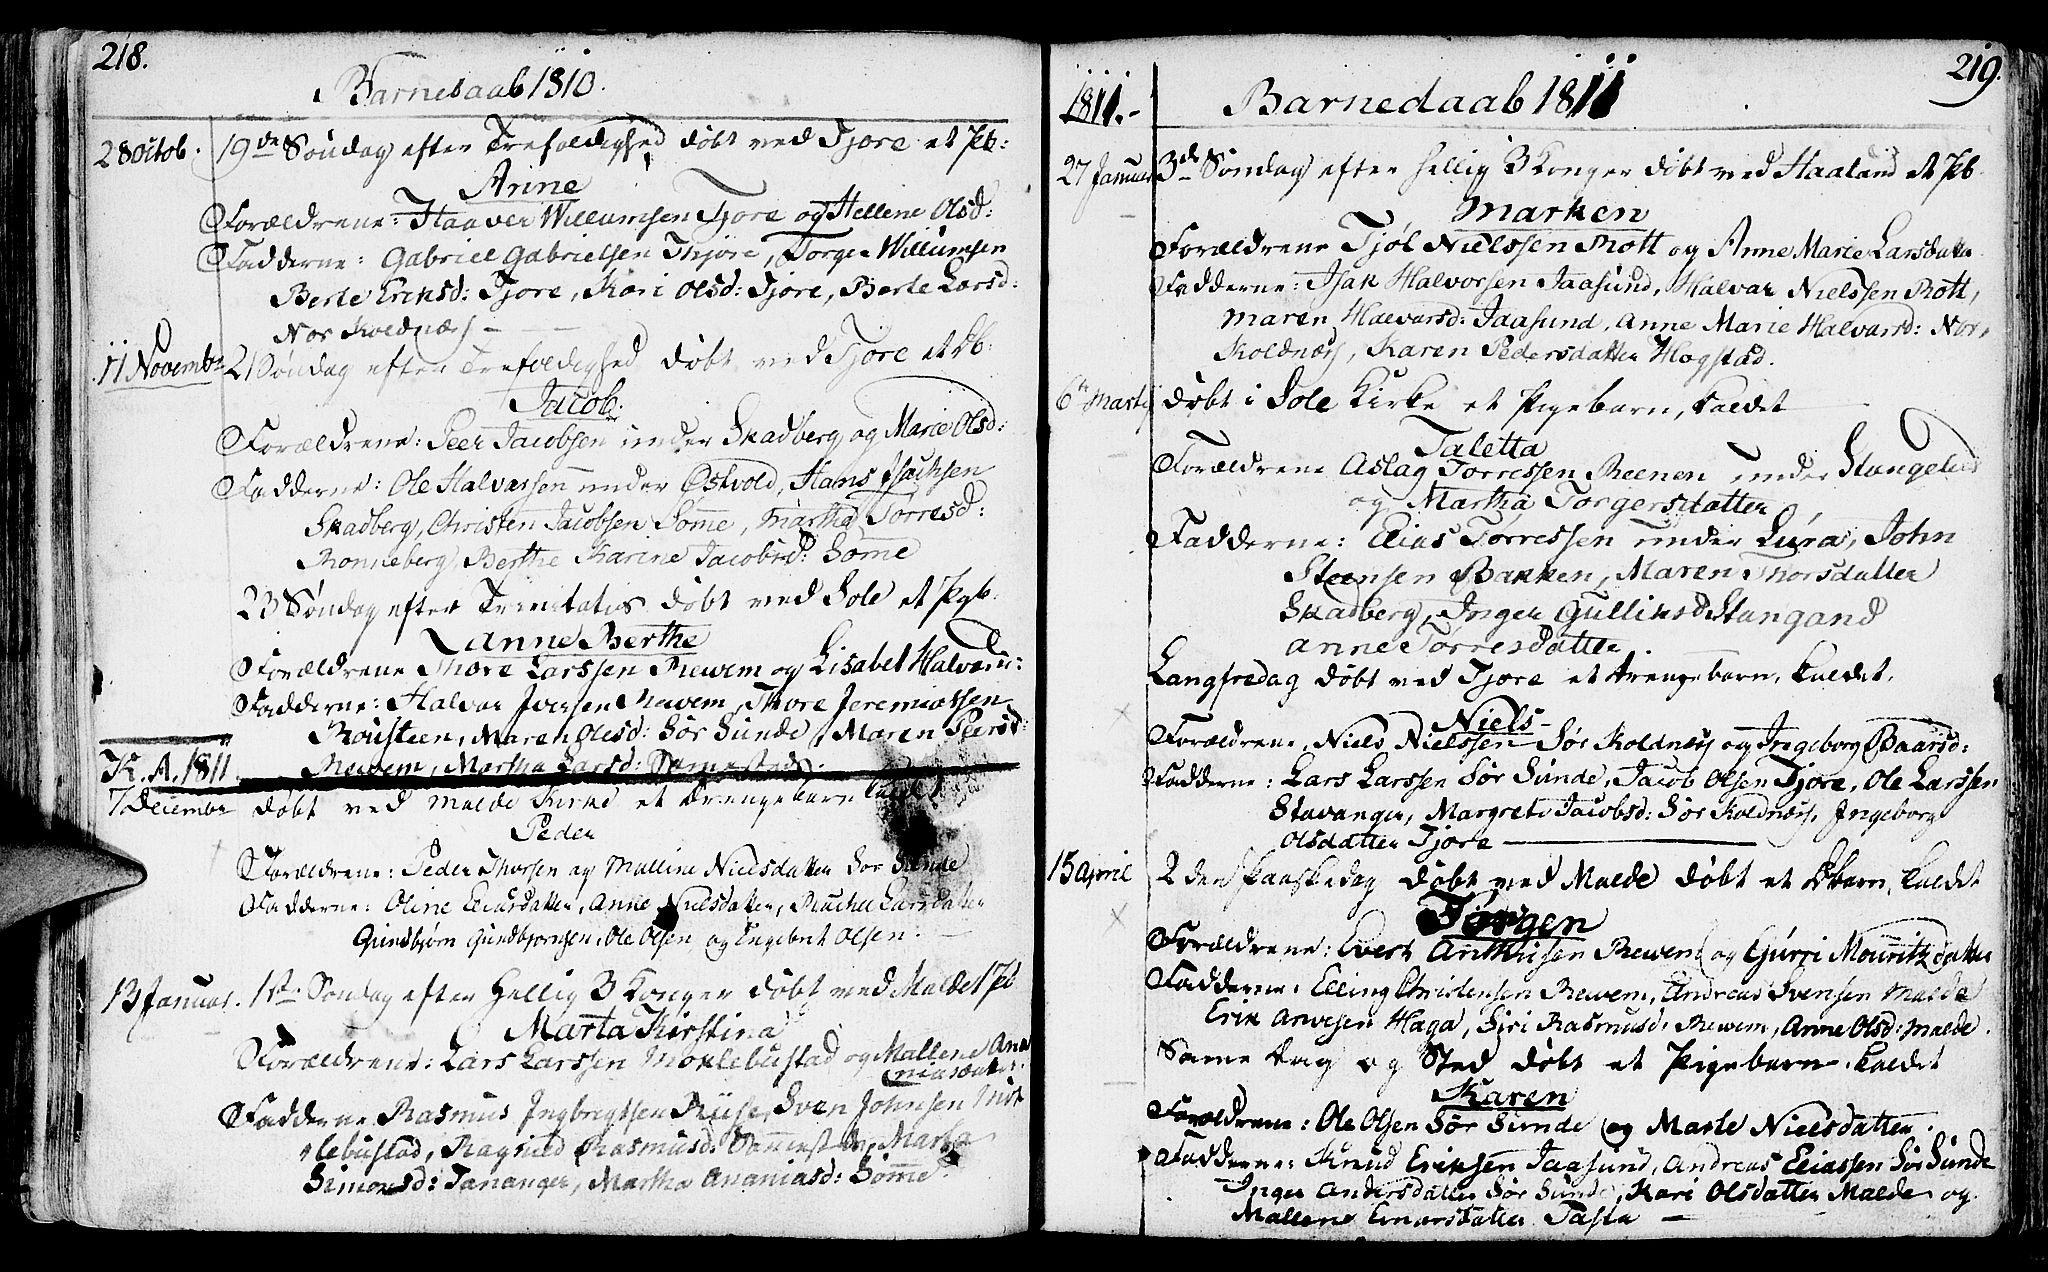 218.
Barnedaab 1810.
28 octob. 19de Søndag efter Trefoldighed døbt ved Tjore et Pb:
Anne
Forældrene: Haaver Willumsen Tjore og Hellene Olsd:
Fadderne: Gabriel Gabrielsen Thjöre, Torger Willumsen
Berte Eriksd: Tjore, Kari Olsd: Tjore, Berte Larsd:
Nor Koldnæs -
11 Novembr 21 Søndag efter Trefoldighed døbt ved Tjore et
Jacob.
Forældrene: Peer Jacobsen under Skadberg og Marie Olsd:
Fadderne: Ole Halvarsen under Østvold, Hans Isachsen
Skadberg, Christen Jacobsen Somme, Martha Torresd:
Ronneberg, Berthe Karine Jacobsd: Somme
23 Søndag efter Trinitatis døbt ved Sole et Pgb.
Anne Berthe
Forældrene Thore Larssen Rewem og Lisabet Halvarsd:
Fadderne: Halvar Iversen Rewem, Thore Jeremiassen
Rousteen, Maren Olesd: Sör Sunde, Maren Peersd:
Rewem, Martha Larsd:
K. A. 1811.
7 Decembr døbt ved Malde Kirke et Drengebarn kaldet
Peder
Forældrene: Peder Thorsen og Malline Nielsdatter Sør Sunde
Fadderne: Oline Eliasdatter, Anne Nielsdatter, Rachel Larsdatter
Gundbjørn Gundbjørnsen, Ole Olsen og Engebret Olsen.
13 Januar. 1ste Søndag efter Hellig 3 Konger døbt ved Malde 1 Pb
Marta Kirstina
Forældrene: Lars Larssen Moklebustad og Mallene Ana
niasdatter:
Fadderne Rasmus Ingbregtsen Riise, Sven Johnsen Mok
lebustad, Ragnild Rasmusd: Marta
Simonsd: Tananger, Martha Ananiasd: Somme
219.
1811.- Barnedaab 1811
27 Januar 3de Søndag efter Hellig 3 Konger døbt ved Haaland et Pb.
Marken
Forældrene Tjøl Nielssen Rott og Anne Marie Larsdatter
Fadderne: Isak Halvorsen Jaasund, Halvar Nielssen Rott,
Maren Halvarsd: Jaasund, Anne Marie Halvarsd: Nor
Koldnæs, Karen Pedersdatter Hogstad.
6te Martij døbt i Sole Kirke et Pigebarn, kaldet
Taletta
Forældrene Aslag Torressen Reenen under Stangeland
og Martha Torgersdatter
Fadderne: Elias Torressen under Lura, John
Steensen Bakken, Maren Thorsdatter
Skadberg, Inger Gulliksd Stangand
Anne Torresdatter.
Langfredag døbt ved Tjore et Drengebarn, kaldet.
Niels-
Forældrene, Niels Nielssen Sör Koldnæs og Ingeborg Baarsd:
Fadderne: Lars Larssen Sör Sunde, Jacob Olsen Tjore, Ole Larssen
Stavanger, Margrete Jacobsd: Sör Koldnæs, Ingeborg
Olsdatter Tjore
15 April 2den Paaskedag døbt ved Malde døbt et Dbarn, kaldet
Torgen
Forældrene: Evert Anthusen Rewem og Gurri Mouritzdatter
Fadderne: Elling Christensen Rewem, Andreas Svensen Malde
Erik Arwesen Haga, Siri Rasmusd: Rewem, Anne Olsd: Malde.
Samme Dag og Sted døbt et Pigebarn, kaldet
Karen
Forældrene: Ole Olsen Sör Sunde og Marte Nielsdatter.
Fadderne: Knud Eriksen Jaasund, Andreas Eliassen Sör Sunde
Inger Andersdatter Sör Sunde, Kari Olsdatter Malde og
Mallene Tasta